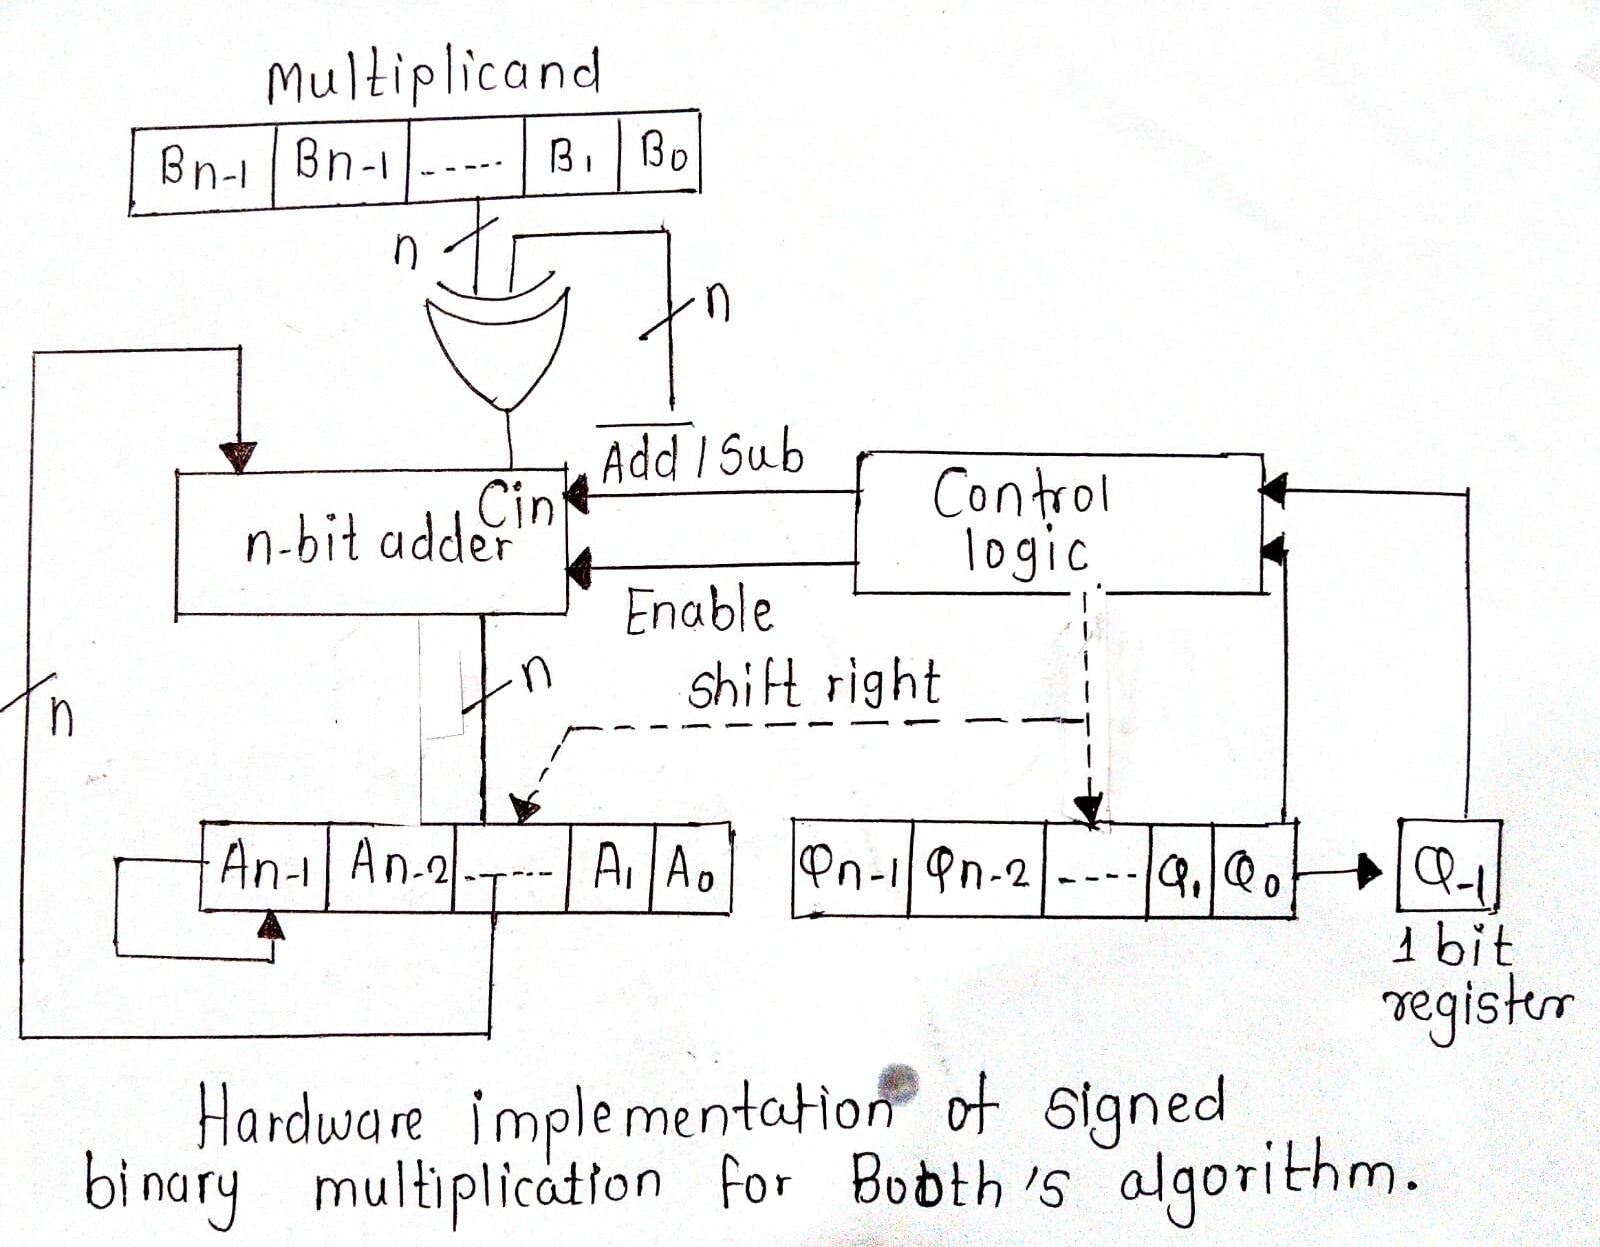 Multiplicand
Bn-1 Bn-1 ...... B1 B0
n
n
Add / Sub
Cin
n-bit adder
Control
logic
Enable
n
shift right
n
An-1 An-2 ...... A1 A0
Qn-1 Qn-2 ---- Q1 Q0
Q-1
1 bit
register
Hardware implementation of signed
binary multiplication for Booth's algorithm.